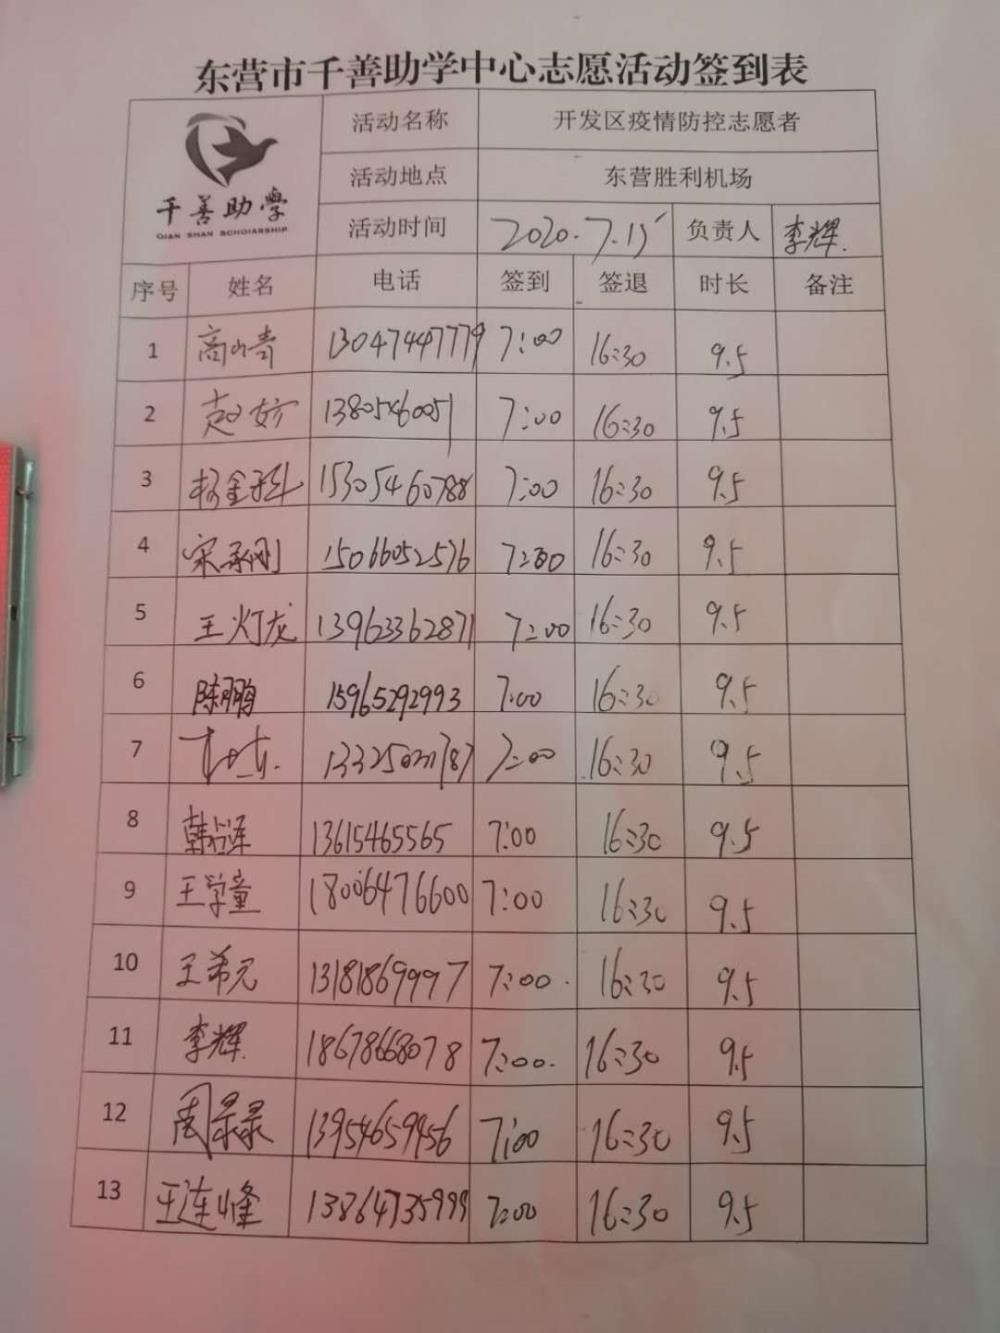 东营市千善助学中心志愿活动签到表
千善助學
QIAN SHAN SCHOLARSHIP
活动名称 开发区疫情防控志愿者
活动地点 东营胜利机场
活动时间 2020.7.15 负责人 李辉.
序号 姓名 电话 签到 签退 时长 备注
1 高山青 13047447779 7:00 16:30 9.5
2 赵婷 13805460051 7:00 16:30 9.5
3 杨金科 15305460788 7:00 16:30 9.5
4 宋承刚 15066052576 7:00 16:30 9.5
5 王灯龙 13963362871 7:00 16:30 9.5
6 陈鹏 15965292993 7:00 16:30 9.5
7 7:00 16:30 9.5
8 韩 13615465565 7:00 16:30 9.5
9 王学童 18006476600 7:00 16:30 9.5
10 王希元 13181869997 7:00. 16:30 9.5
11 李辉. 18678668078 7:00. 16:30 9.5
12 周景景 13954659456 7:00 16:30 9.5
13 王连峰 13864735999 7:00 16:30 9.5